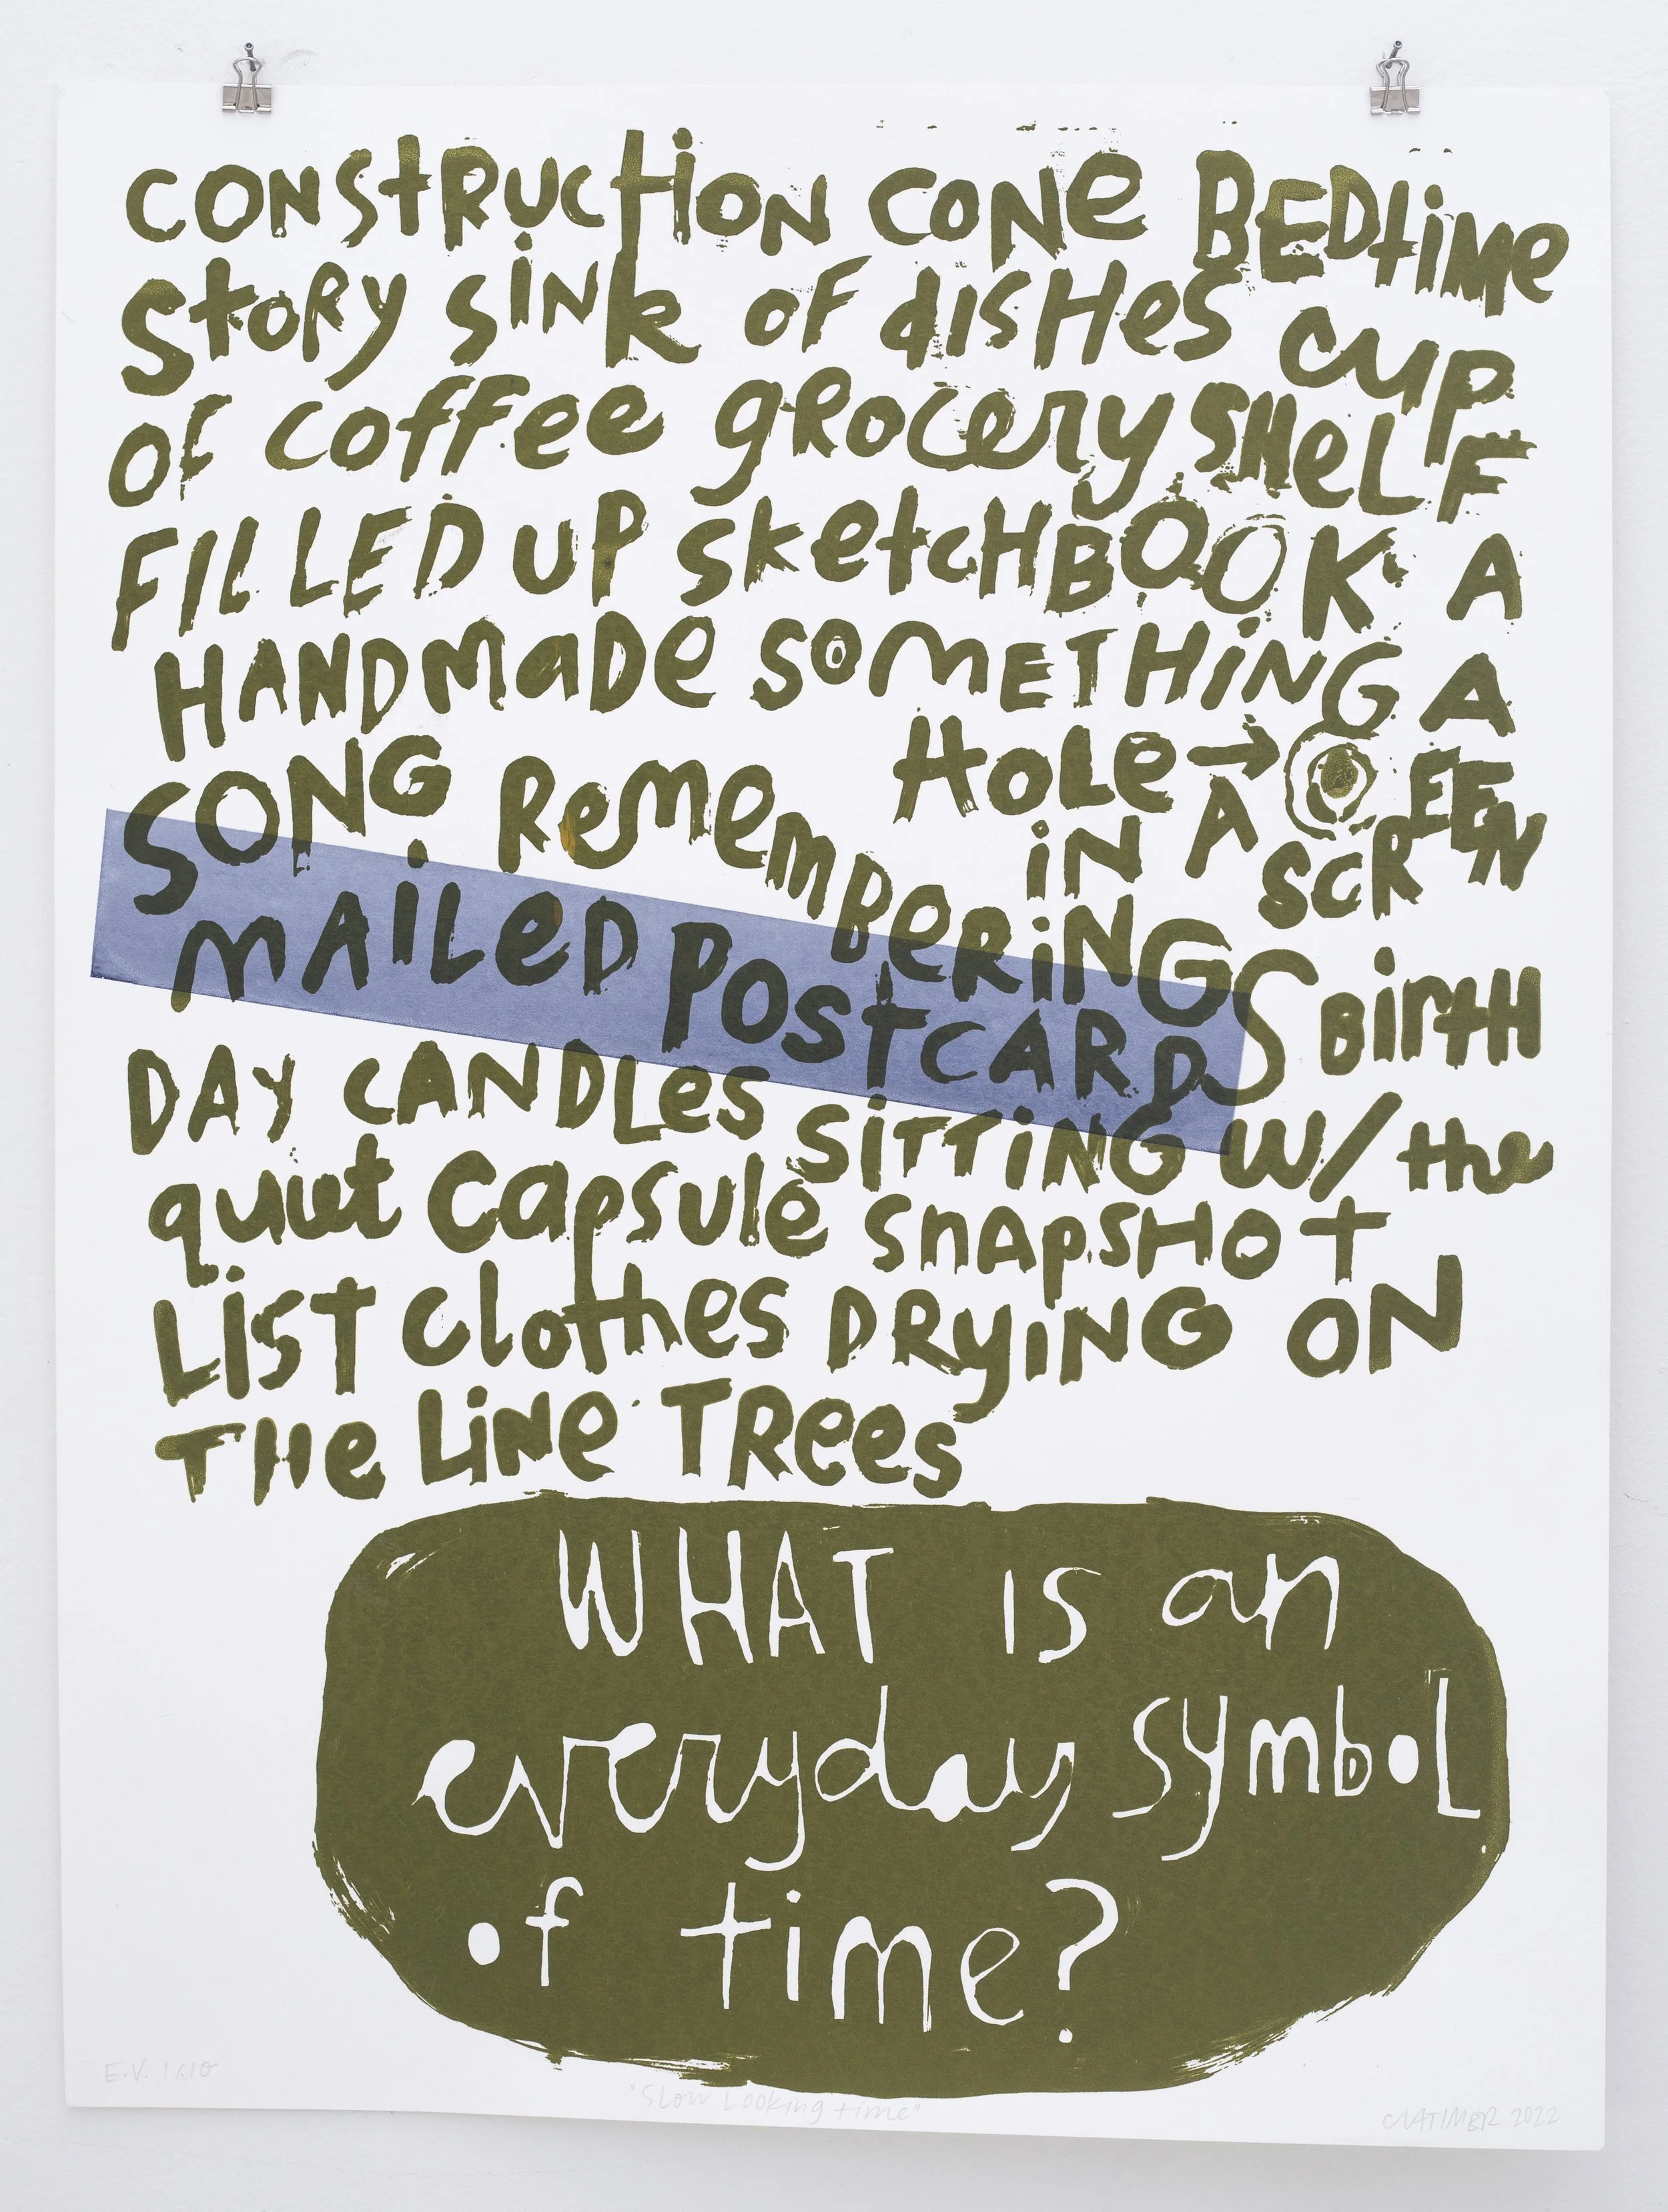 CONStRUCtiON CONe BEDtiMe
StoRy SiNk OF diSHeS CUP
OF coffee gROceRy SHeLF
FILLED UP SketCHBOOK A
HANDMaDe SOMETHiNG A
SONG ReMeMBeRiNG HoLe → iN A SCREEN
MAiLeD POStCARDS BiRtH
DAY CANDLeS SiTTiNG W/ the
quiet Capsule SnApSHOt
LiSt Clothes DRyiNG ON
THe LiNe TRees
WHAT IS an
everyday symboL
of time?
E.V. 1/10
"Slow Looking time"
CLATIMER 2022